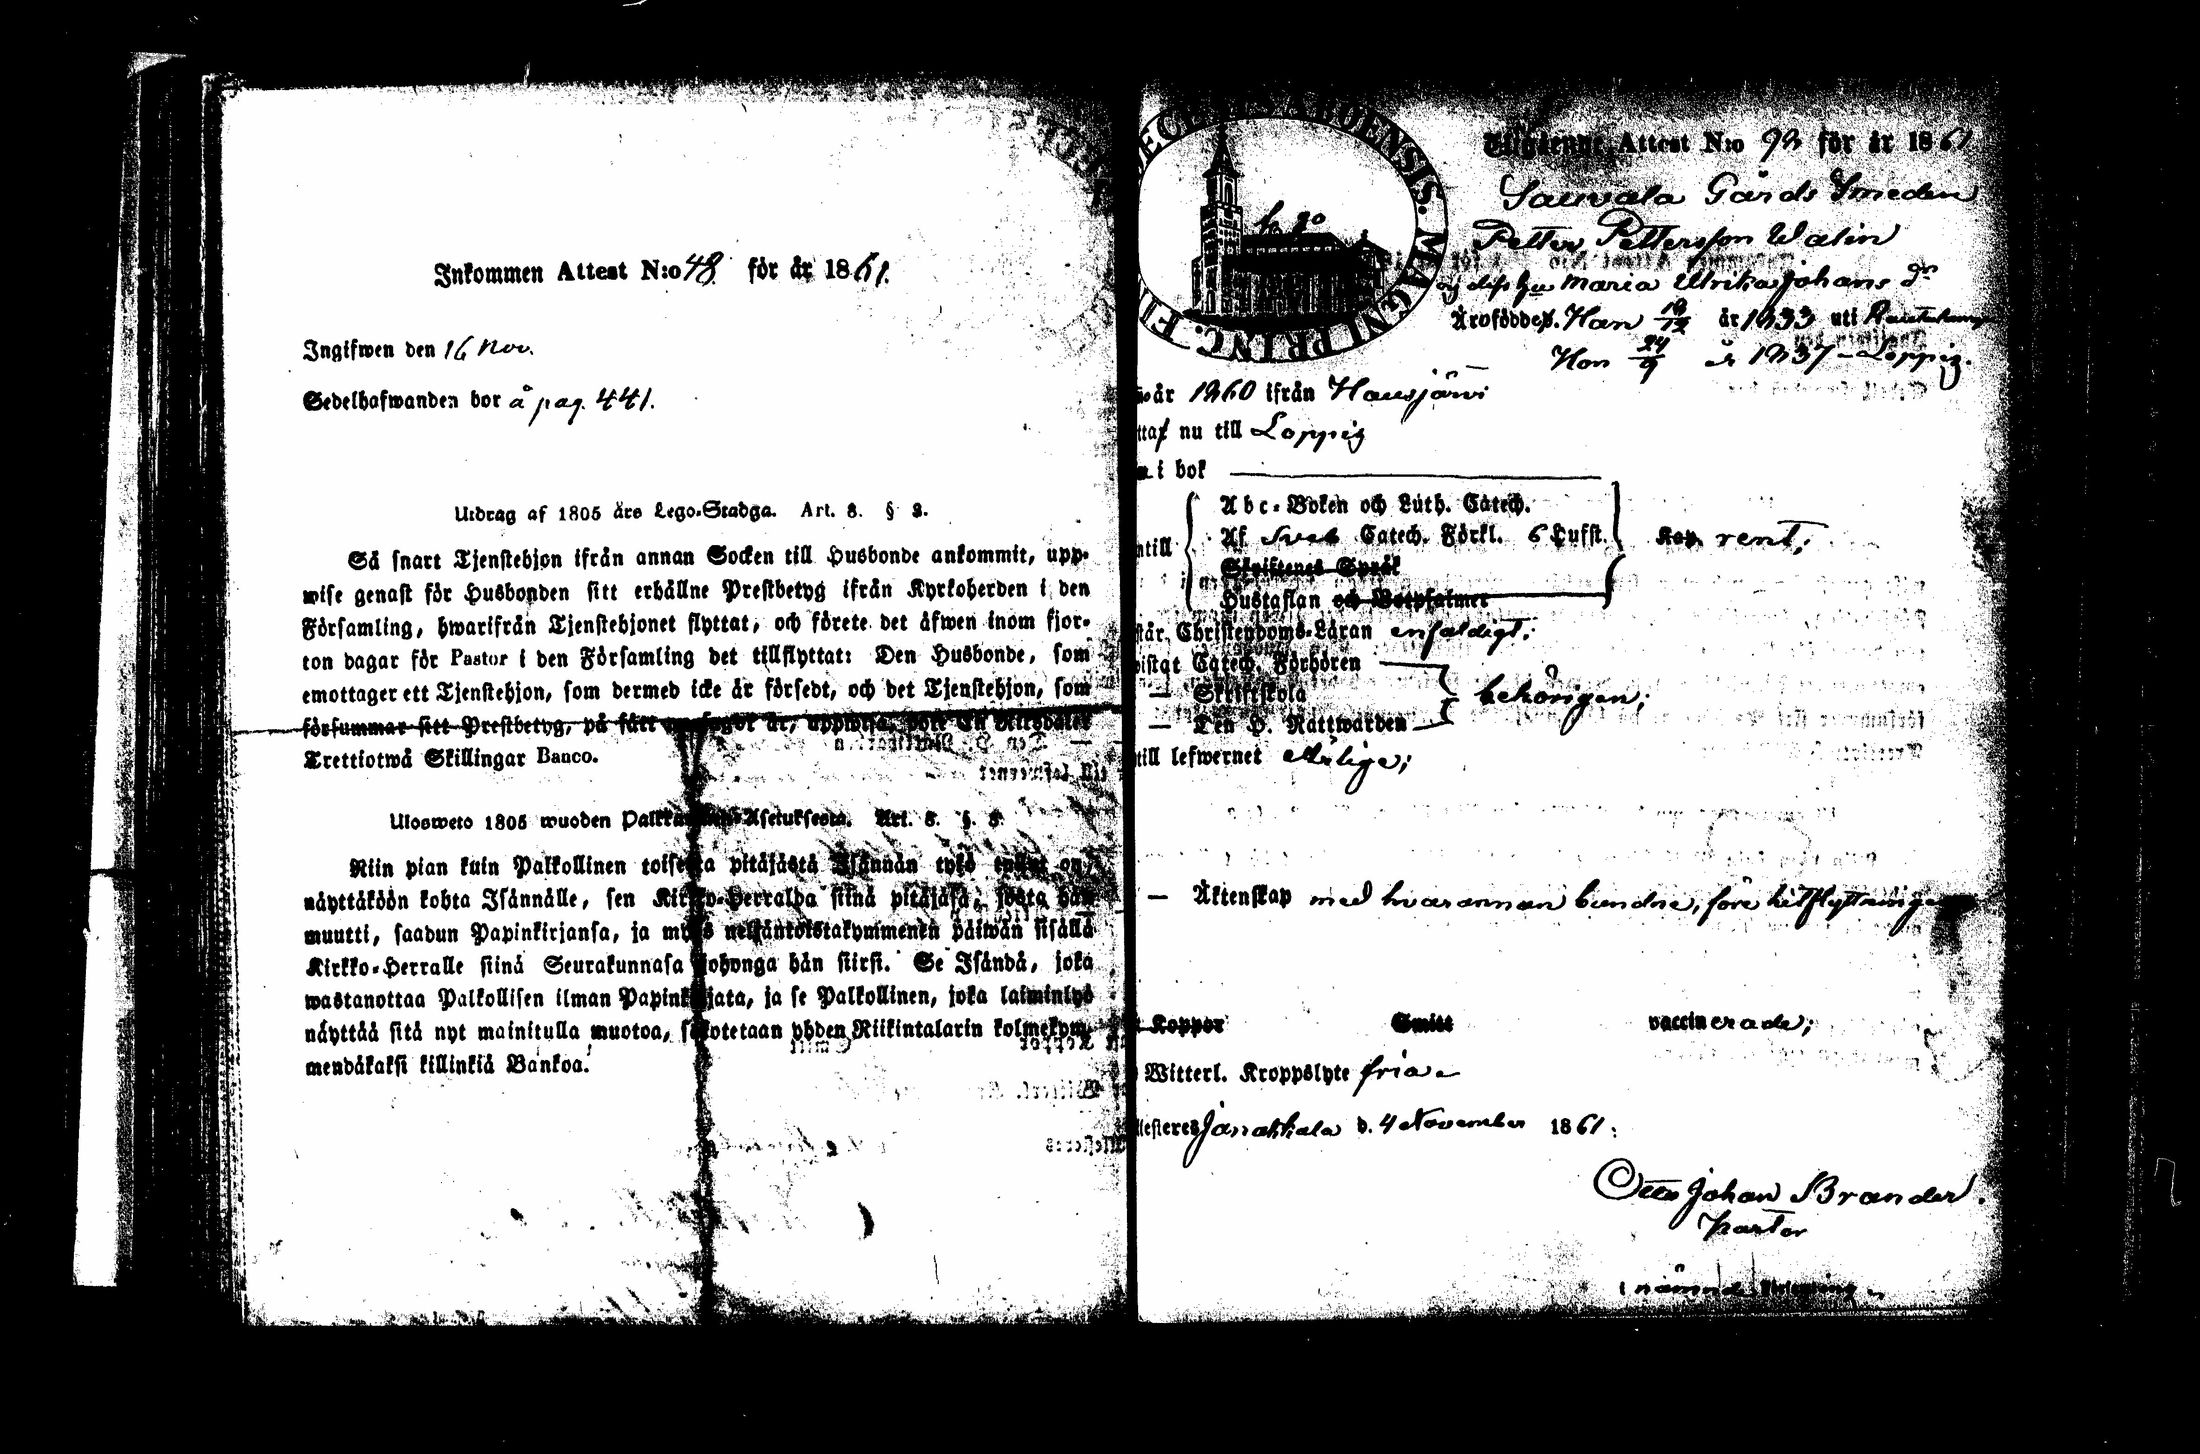 Inkommen Attest N:o 48 för år 1861.
Ingifwen den 16 Nov.
Sedelhafwanden bor å pag. 441.
Utdrag af 1805 års Lego-Stadga. Art. 3. § 3.
Så snart Tjenstehjon ifrån annan Socken till Husbonde ankommit, upp-
wise genast för Husbonden sitt erhållne Prestbetyg ifrån Kyrkoherden i den
Församling, hwarifrån Tjenstehjonet flyttat, och förete det äfwen inom fjor-
ton dagar för Pastor i den Församling det tillflyttat: Den Husbonde, som
emottager ett Tjenstehjon, som dermed icke är försedt, och det Tjenstehjon, som
försummar sitt Prestbetyg, på sätt är, uppwisa, böte En Riksdaler
Trettiotwå Skillingar Banco.
Ulosweto 1805 wuoden Asetuksesta. Art. 3. §. 3
Niin pian kuin Palkollinen toisesta pitäjästä Isännän tykö tullut on,
näyttäköön kohta Isännälle, sen Kirkko-Herralda siinä pitäjäsä, josta hän
muutti, saadun Papinkirjansa, ja myös neljäntoistakymmenen päiwän sisällä
Kirkko-Herralle siinä Seurakunnasa johonga hän siirsi. Se Isändä, joka
wastanottaa Palkollisen ilman Papinkirjata, ja se Palkollinen, joka laiminlyö
näyttää sitä nyt mainitulla muotoa, sakotetaan yhden Riikintalarin kolmekym-
mendäkaksi killinkiä Bankoa.
DIOECES ABOENSIS. MAGNI PRINC. FI
Attest N:o 92 för år 1861
Sauvala Gårds Smeden
Petter Pettersson Walin
och dess hu Maria Ulrika Johans dr
Äro födde. Han 18/12 år 1833 uti
Hon 24/9 år 1837 – Loppis.
år 1860 ifrån Hausjärvi
nu till Loppis
i bok
Abc-Boken och Luth. Catech.
Af Sveb Catech. Förkl. 6 Hufst. rent;
till
Skriftenes Språk
Hustaflan och Botpsalmer
står Christendoms-Läran enfaldigt;
wistat Catech. Förhören
— Skriftskola behörigen;
— Den H. Nattwarden
till lefwernet ärlige;
— Äktenskap med hvarannan bundne, före hitflyttningen
Koppor Smitt vaccinerade;
Witterl. Kroppslyte fria
Janakkala d. 4 November 1861:
Otto Johan Brander.
Pastor